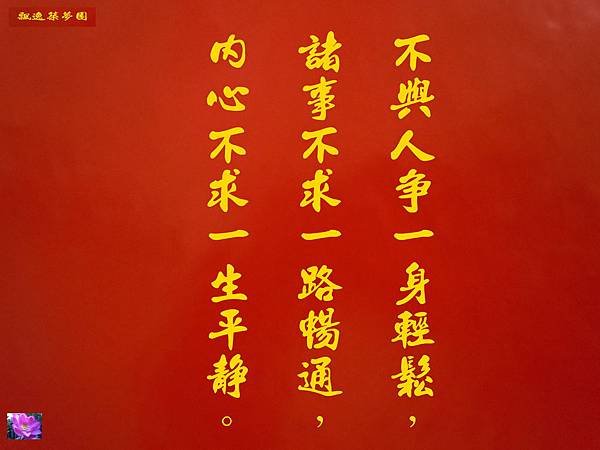 飄逸築夢園
不與人争一身輕鬆，
諸事不求一路暢通，
内心不求一生平静。